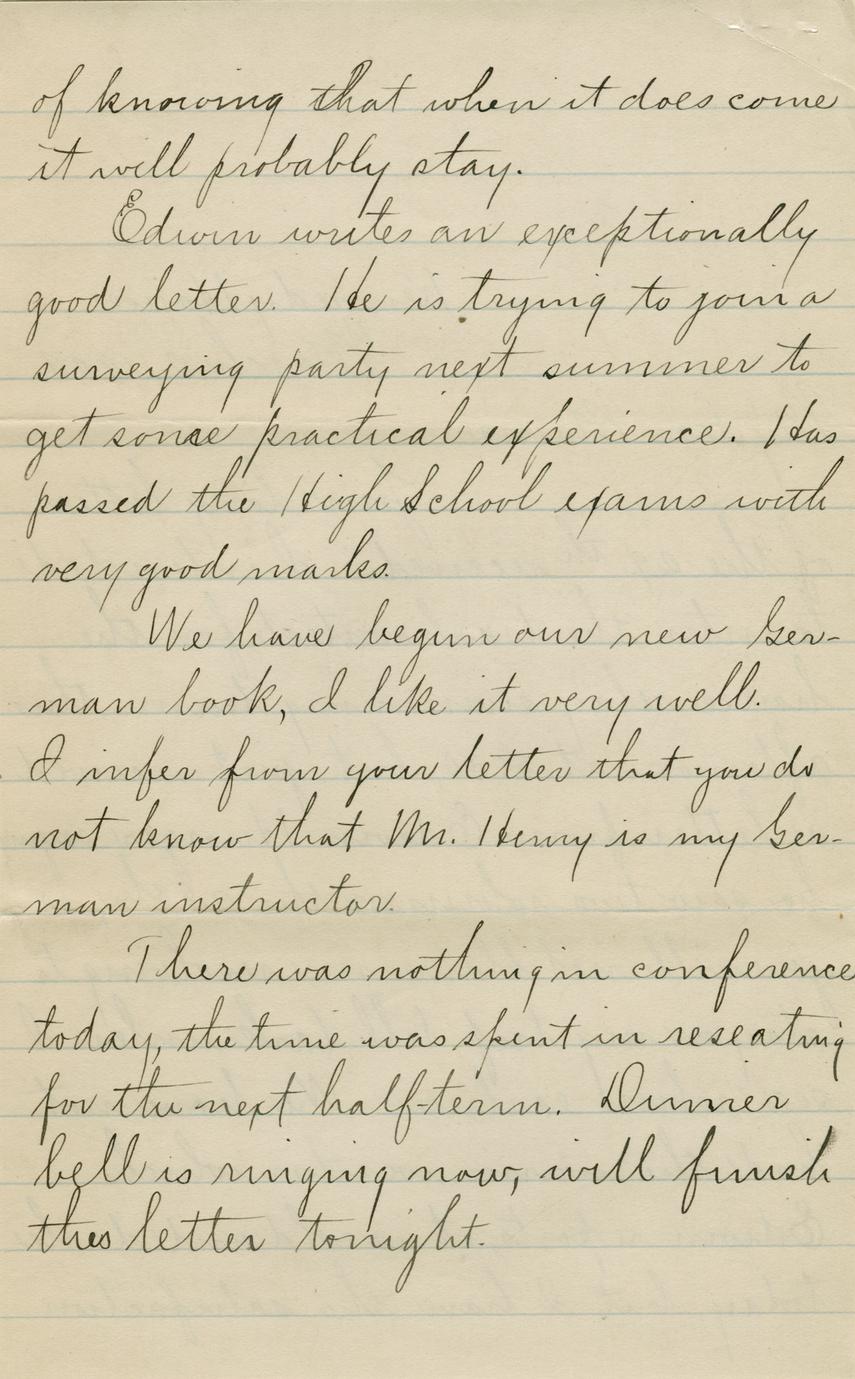 of knowing that when it does come
it will probably stay.
Edwin writes an exceptionally
good letter. He is trying to join a
surveying party next summer to
get some practical experience. Has
passed the High School exams with
very good marks.
We have begun our new Ger-
man book, I like it very well.
I infer from your letter that you do
not know that Mr. Henry is my Ger-
man instructor.
There was nothing in conference
today, the time was spent in reseating
for the next half-term. Dinner
bell is ringing now, will finish
this letter tonight.